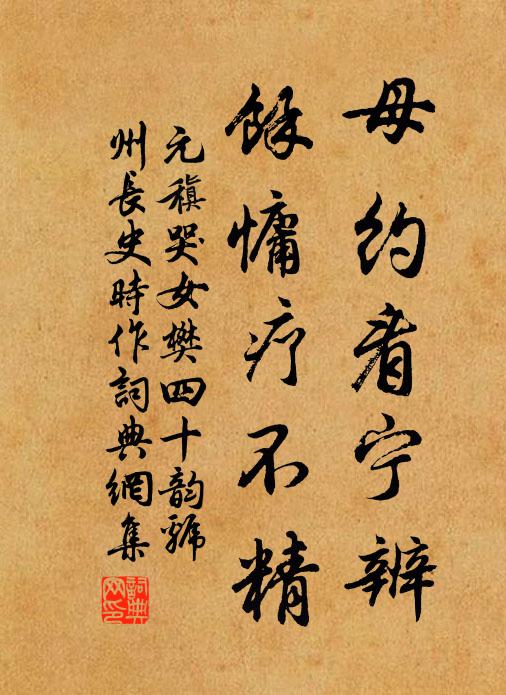 母约看宁辨
餘慵疗不精
元稹哭女樊四十韵虢
州長史時作詞典網集
詞典
网印